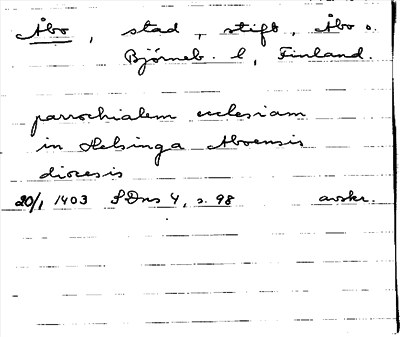 Åbo, stad, stift, Åbo o.
Björneb. l, Finland.
parrochialem ecclesiam
in Helsinga Aboensis
diocesis
20/1 1403 SDns 4, s. 98 avskr.